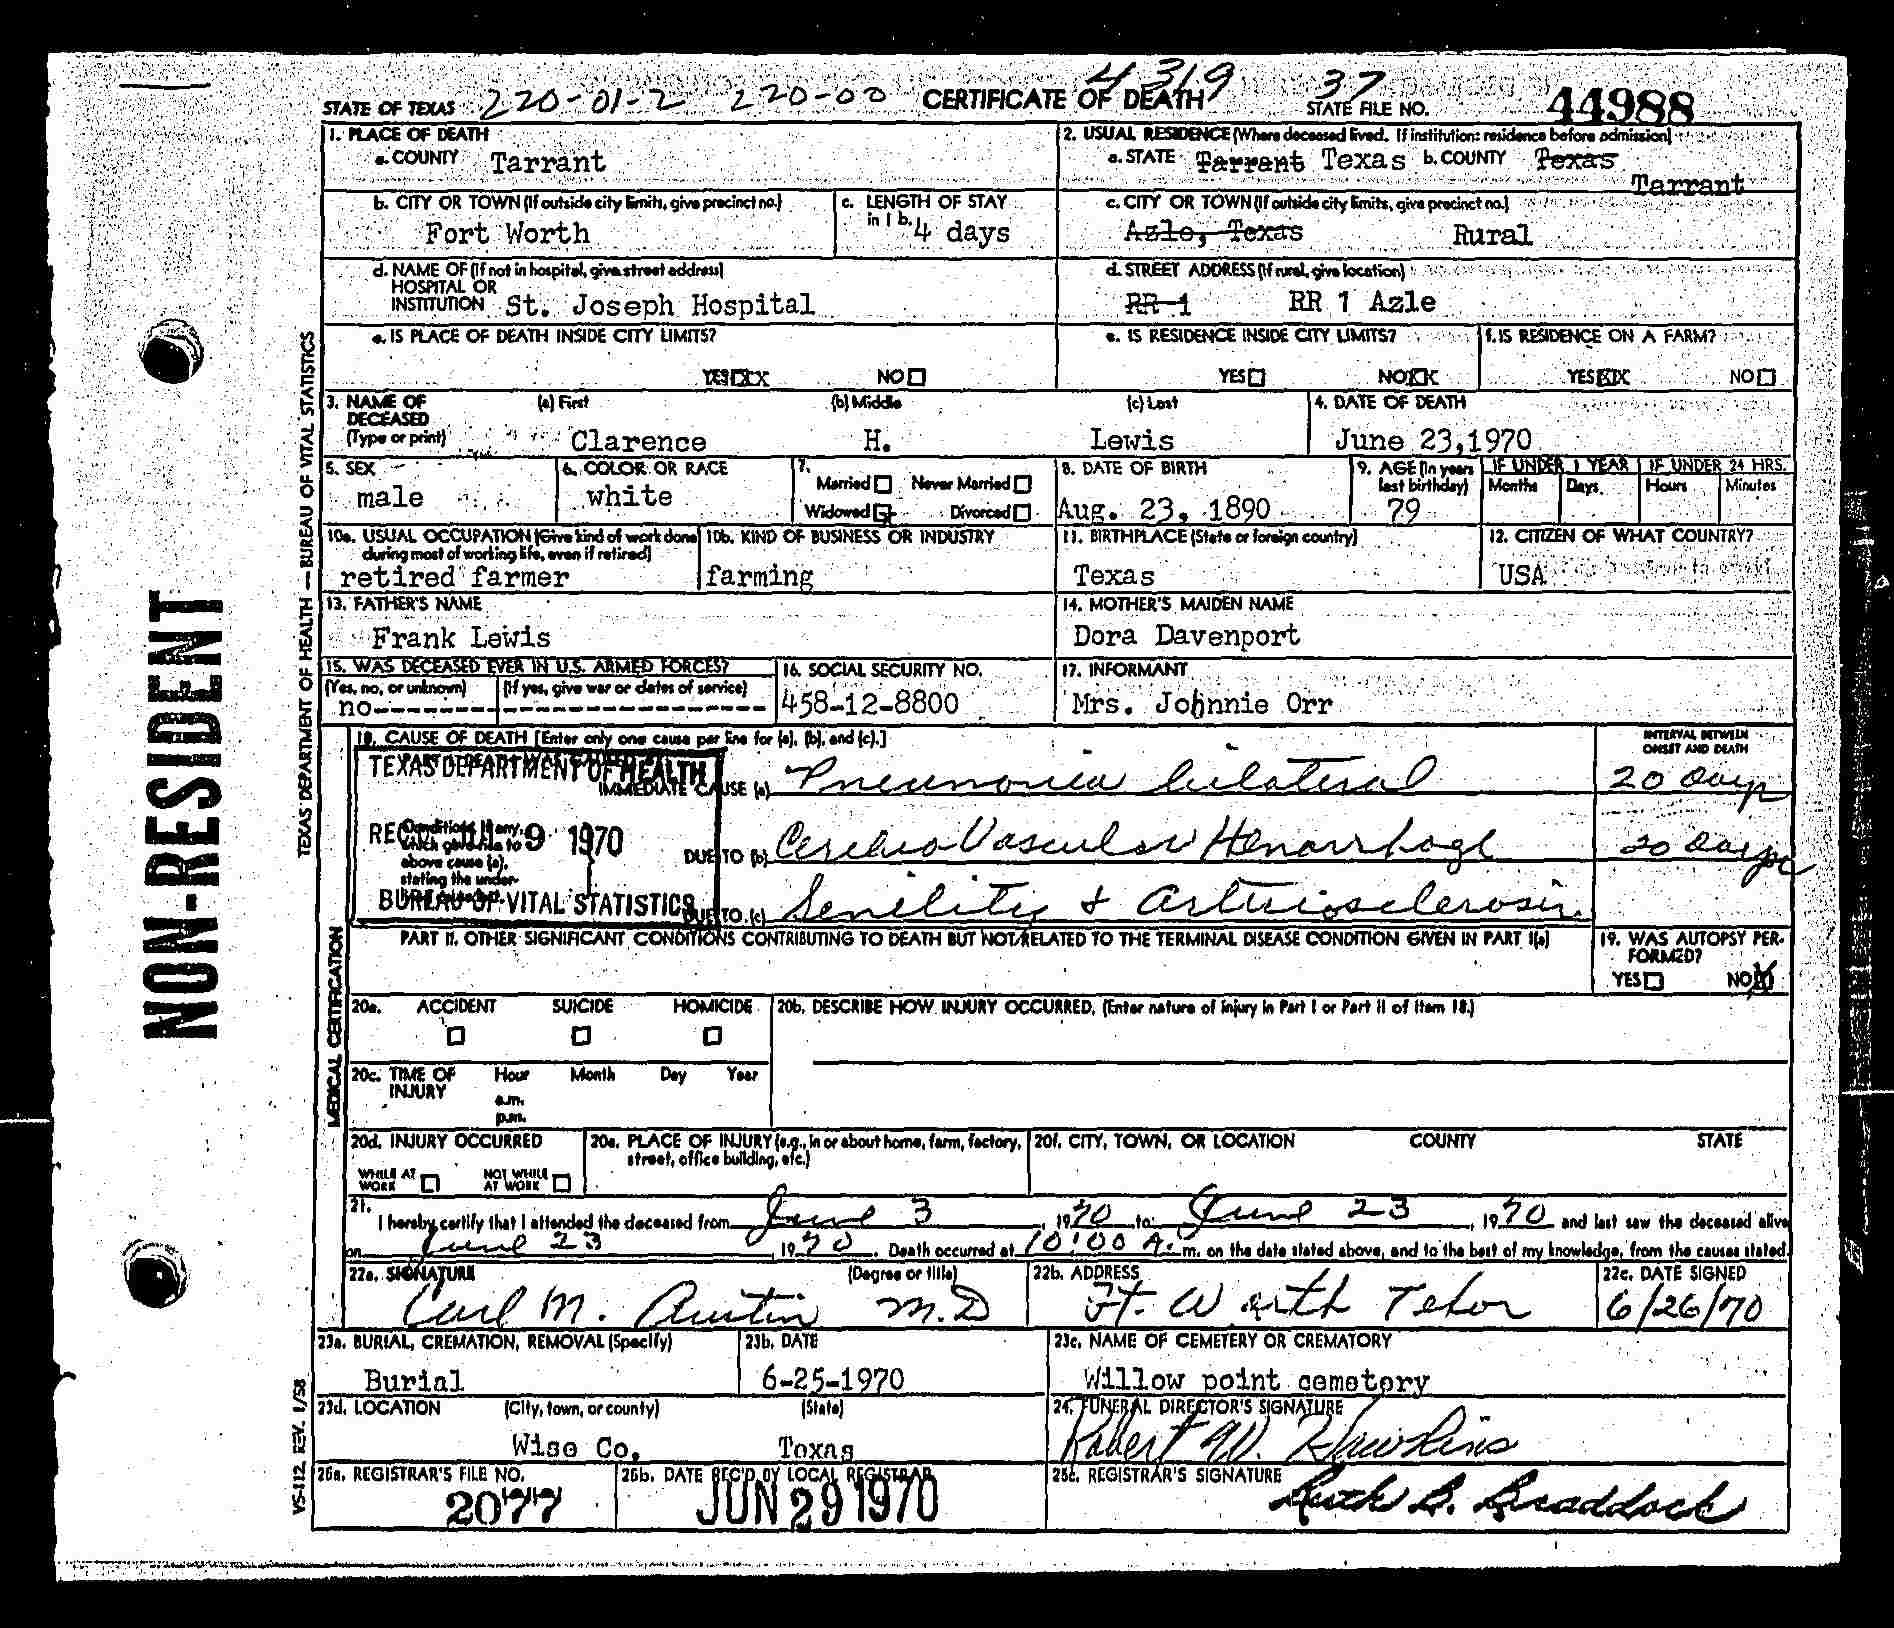 4319
STATE OF TEXAS 220-01-2 220-00 CERTIFICATE OF DEATH 37 STATE FILE NO. 44988
1. PLACE OF DEATH
a. COUNTY Tarrant
2. USUAL RESIDENCE (Where deceased lived. If institution: residence before admission)
a. STATE Tarrant Texas b. COUNTY Texas
Tarrant
b. CITY OR TOWN (If outside city limits, give precinct no.)
Fort Worth
c. LENGTH OF STAY
in 1 b. 4 days
c. CITY OR TOWN (If outside city limits, give precinct no.)
Azle, Texas Rural
d. NAME OF (If not in hospital, give street address)
HOSPITAL OR
INSTITUTION St. Joseph Hospital
d. STREET ADDRESS (If rural, give location)
RR 1 RR 1 Azle
e. IS PLACE OF DEATH INSIDE CITY LIMITS?
YES XX NO
e. IS RESIDENCE INSIDE CITY LIMITS?
YES NO XX
f. IS RESIDENCE ON A FARM?
YES XX NO
3. NAME OF
DECEASED
(Type or print)
(a) First (b) Middle (c) Last
Clarence H. Lewis
4. DATE OF DEATH
June 23,1970
5. SEX
male
6. COLOR OR RACE
white
7.
Married Never Married
Widowed X Divorced
8. DATE OF BIRTH
Aug. 23, 1890
9. AGE (In years
last birthday)
79
IF UNDER 1 YEAR IF UNDER 24 HRS.
Months Days Hours Minutes
10a. USUAL OCCUPATION (Give kind of work done
during most of working life, even if retired)
retired farmer
10b. KIND OF BUSINESS OR INDUSTRY
farming
11. BIRTHPLACE (State or foreign country)
Texas
12. CITIZEN OF WHAT COUNTRY?
USA
13. FATHER'S NAME
Frank Lewis
14. MOTHER'S MAIDEN NAME
Dora Davenport
15. WAS DECEASED EVER IN U.S. ARMED FORCES?
(Yes, no, or unknown) (If yes, give war or dates of service)
no
16. SOCIAL SECURITY NO.
458-12-8800
17. INFORMANT
Mrs. Johnnie Orr
18. CAUSE OF DEATH [Enter only one cause per line for (a), (b), and (c).]
INTERVAL BETWEEN
ONSET AND DEATH
TEXAS DEPARTMENT OF HEALTH
IMMEDIATE CAUSE (a) Pneumonia bilateral 20 days
Conditions if any,
which gave rise to
above cause (a),
stating the under-
REC'D 9 1970
DUE TO (b) Cerebro Vascular Hemorrhage 20 days
BUREAU OF VITAL STATISTICS
DUE TO (c) Senility & Arteriosclerosis
PART II. OTHER SIGNIFICANT CONDITIONS CONTRIBUTING TO DEATH BUT NOT RELATED TO THE TERMINAL DISEASE CONDITION GIVEN IN PART I(a)
19. WAS AUTOPSY PER-
FORMED?
YES NO X
20a. ACCIDENT SUICIDE HOMICIDE
20b. DESCRIBE HOW INJURY OCCURRED. (Enter nature of injury in Part I or Part II of Item 18.)
20c. TIME OF
INJURY
Hour Month Day Year
a.m.
p.m.
20d. INJURY OCCURRED
WHILE AT
WORK
NOT WHILE
AT WORK
20e. PLACE OF INJURY (e.g., in or about home, farm, factory,
street, office building, etc.)
20f. CITY, TOWN, OR LOCATION COUNTY STATE
21.
I hereby certify that I attended the deceased from June 3, 1970 to June 23, 1970 and last saw the deceased alive
on June 23, 1970. Death occurred at 10:00 A. m. on the date stated above, and to the best of my knowledge, from the causes stated.
22a. SIGNATURE (Degree or title)
Carl M. Austin M.D
22b. ADDRESS
Ft. Worth Texas
22c. DATE SIGNED
6/26/70
23a. BURIAL, CREMATION, REMOVAL (Specify)
Burial
23b. DATE
6-25-1970
23c. NAME OF CEMETERY OR CREMATORY
Willow point cemetery
23d. LOCATION (City, town, or county) (State)
Wise Co. Texas
24. FUNERAL DIRECTOR'S SIGNATURE
Robert W. Hawkins
25a. REGISTRAR'S FILE NO.
2077
25b. DATE REC'D BY LOCAL REGISTRAR
JUN 29 1970
25c. REGISTRAR'S SIGNATURE
Ruth B. Braddock
NON-RESIDENT
TEXAS DEPARTMENT OF HEALTH — BUREAU OF VITAL STATISTICS
MEDICAL CERTIFICATION
VS-112 REV. 1/58